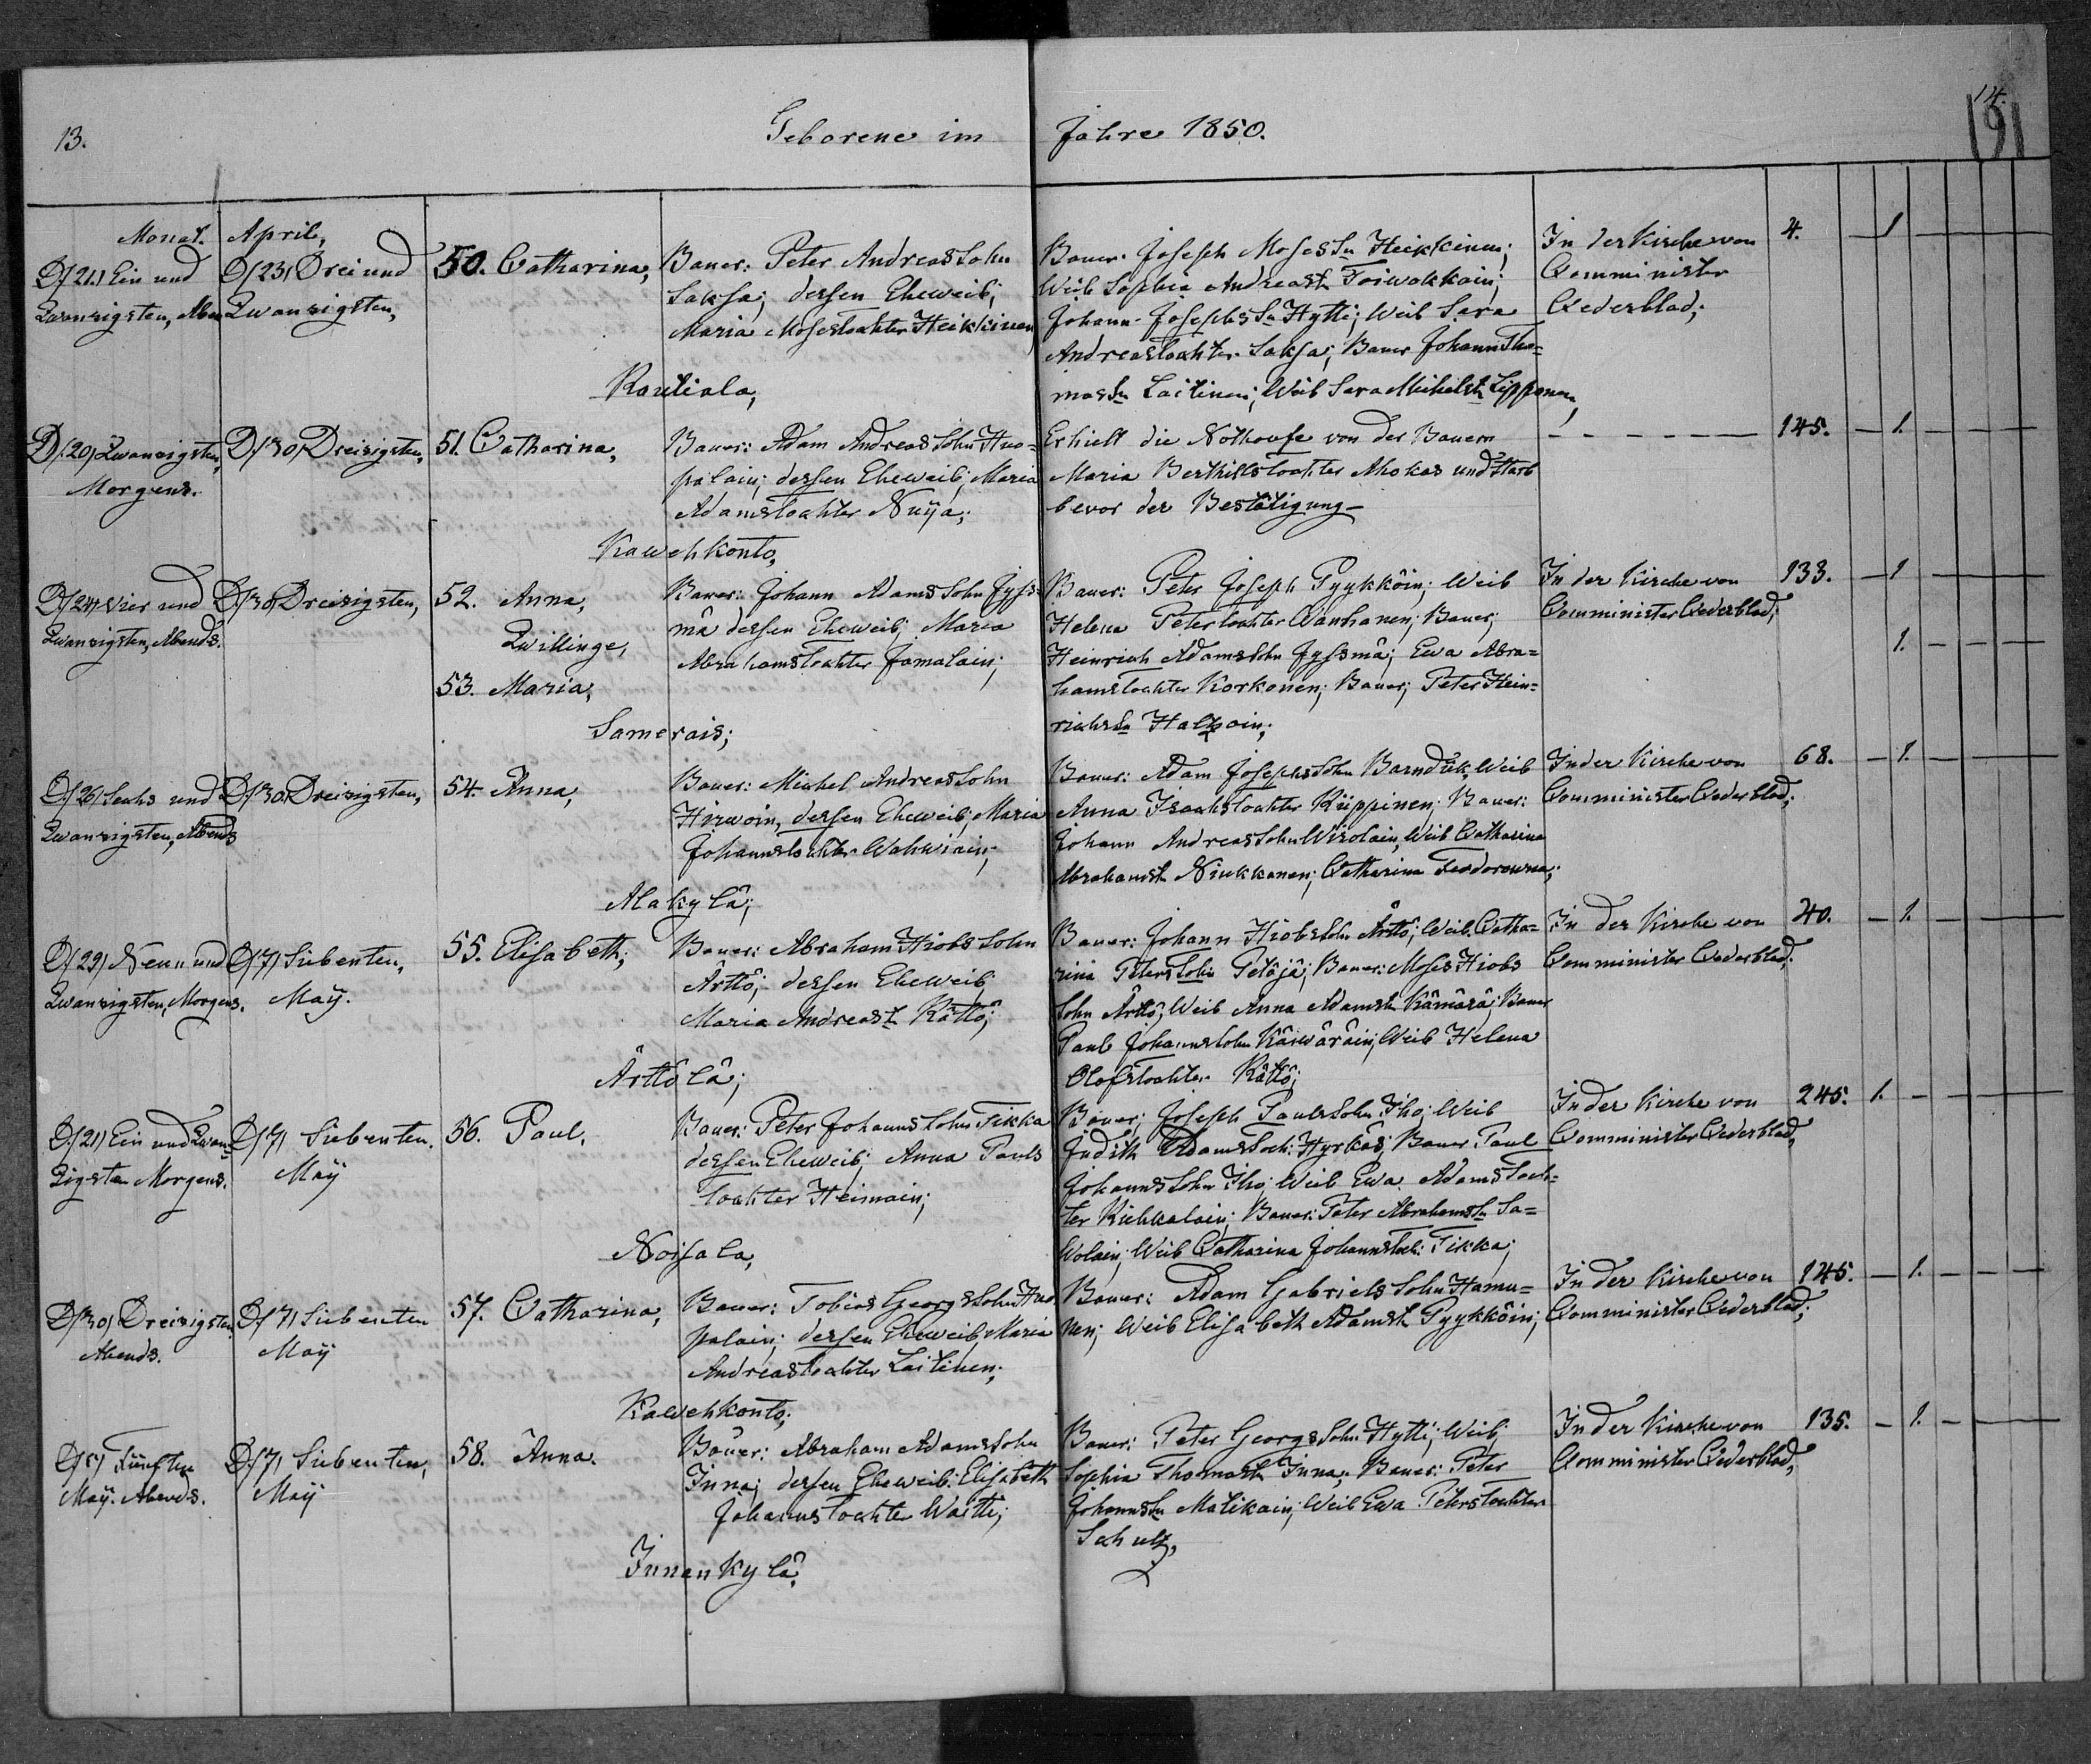 13.
Geborene im Jahre 1850.
14.
191
Monat. April,
D/21.) Ein und
Zwanzigsten, Aben
D/23) Drei und
Zwanzigsten,
50. Catharina,
Bauer: Peter Andreas Sohn
Saksa; dessen Eheweib;
Maria Mosestochter Heikkinen
Routiala,
Bauer: Joseph Moses Sn Heikkinen;
Weib Sophia Andreast Toiwokkain;
Johann Josephs Sn Hytti; Weib Sara
Andreastochter Saksa; Bauer Johann Tho=
mas Sn Laitinen; Weib Sara Michelst Lipponen,
In der Kirche von
Comminister
Cederblad;
4. 1
D/20) Zwanzigsten,
Morgens.
D/30) Dreisigsten,
51. Catharina,
Bauer: Adam Andreas Sohn Huo=
palain; dessen Eheweib; Maria
Adamstochter Nuija;
Kawehkonto,
Erhielt die Nothoufe von der Bauern
Maria Berthilstochter Ahokas und starb
bevor der Bestätigung —
145. — 1.
D/24) Vier und
Zwanzigsten, Abends.
D/30) Dreisigsten,
52. Anna,
Zwillinge,
53. Maria,
Bauer: Johann Adams Sohn Jyss=
mä dessen Eheweib; Maria
Abrahamstochter Jamalain;
Samerais;
Bauer: Peter Joseph Pyykköin; Weib
Helena Peterstochter Wanhanen; Bauer;
Heinrich Adamssohn Jyssmä; Ewa Abra=
hamstochter Korkonen; Bauer; Peter Hein=
richs Sn Halkoin;
In der Kirche von
Comminister Cederblad;
133. — 1
1.
D/26) Sechs und
Zwanzigsten, Abends
D/30) Dreisigsten,
54. Anna,
Bauer: Michel Andreas Sohn
Hirwoin, dessen Eheweib; Maria
Johannstochter Wahwiain;
Alakylä;
Bauer: Adam Josephs Sohn Barndük, Weib
Anna Isaakstochter Küppinen; Bauer:
Johann Andreas Sohn Wirolain, Weib Catharina
Abrahamst Niukkanen; Catharina Feodorowna;
In der Kirche von
Comminister Cederblad;
68. — 1.
D/29) Neun und
Zwanzigsten, Morgens.
D/7) Siebenten,
May.
55. Elisabeth;
Bauer: Abraham Hiobs Sohn
Ärttö; dessen Eheweib;
Maria Andreast Kättö;
Ärttölä;
Bauer: Johann Hiobs Sohn Ärttö; Weib. Catha=
rina Peters Petäjä; Bauer: Moses Hiobs
Sohn Ärttö; Weib Anna Adamst Kämärä; Bauer
Paul Johannssohn Käiwäräin; Weib Helena
Olofstochter Kättö;
In der Kirche von
Comminister Cederblad;
40. — 1.
D/21) Ein und Zwan=
zigsten Morgens.
D/7) Siebenten.
May
56. Paul,
Bauer: Peter Johanns Sohn Tikka
dessen Eheweib; Anna Pauls
tochter Heimain;
Noisala,
Bauer; Joseph Pauls Sohn Iho; Weib
Judith Adamstoch: Hyrkäs; Bauer Paul
Johanns Sohn Iho; Weib Ewa Adamstoch=
ter Kiehkalain; Bauer: Peter Abrahams Sn Sa=
wolain; Weib Catharina Johannstoch: Tikka;
In der Kirche von
Comminister Cederblad,
245. 1.
D/30) Dreisigsten
Abends.
D/7) Siebenten
May
57. Catharina,
Bauer: Tobias Georgs Sohn Huo
palain; dessen Eheweib, Maria
Andreastochter Laitinen;
Kawehkonto;
Bauer: Adam Gabriels Sohn Hamu=
nen; Weib Elisabeth Adamst Pyykköin;
In der Kirche von
Comminister Cederblad;
145. — 1.
D/5) Fünften
May. Abends.
D/7) Siebenten,
May
58. Anna.
Bauer: Abraham Adamssohn
Inna; dessen Eheweib. Elisabeth
Johannstochter Waitti;
Innankylä,
Bauer: Peter Georgs Sohn Hytti; Weib
Sophia Thomast Inna; Bauer: Peter
Johanns Sn Matikain; Weib Ewa Peterstochter
Schultz,
In der Kirche von
Comminister Cederblad,
135. — 1.